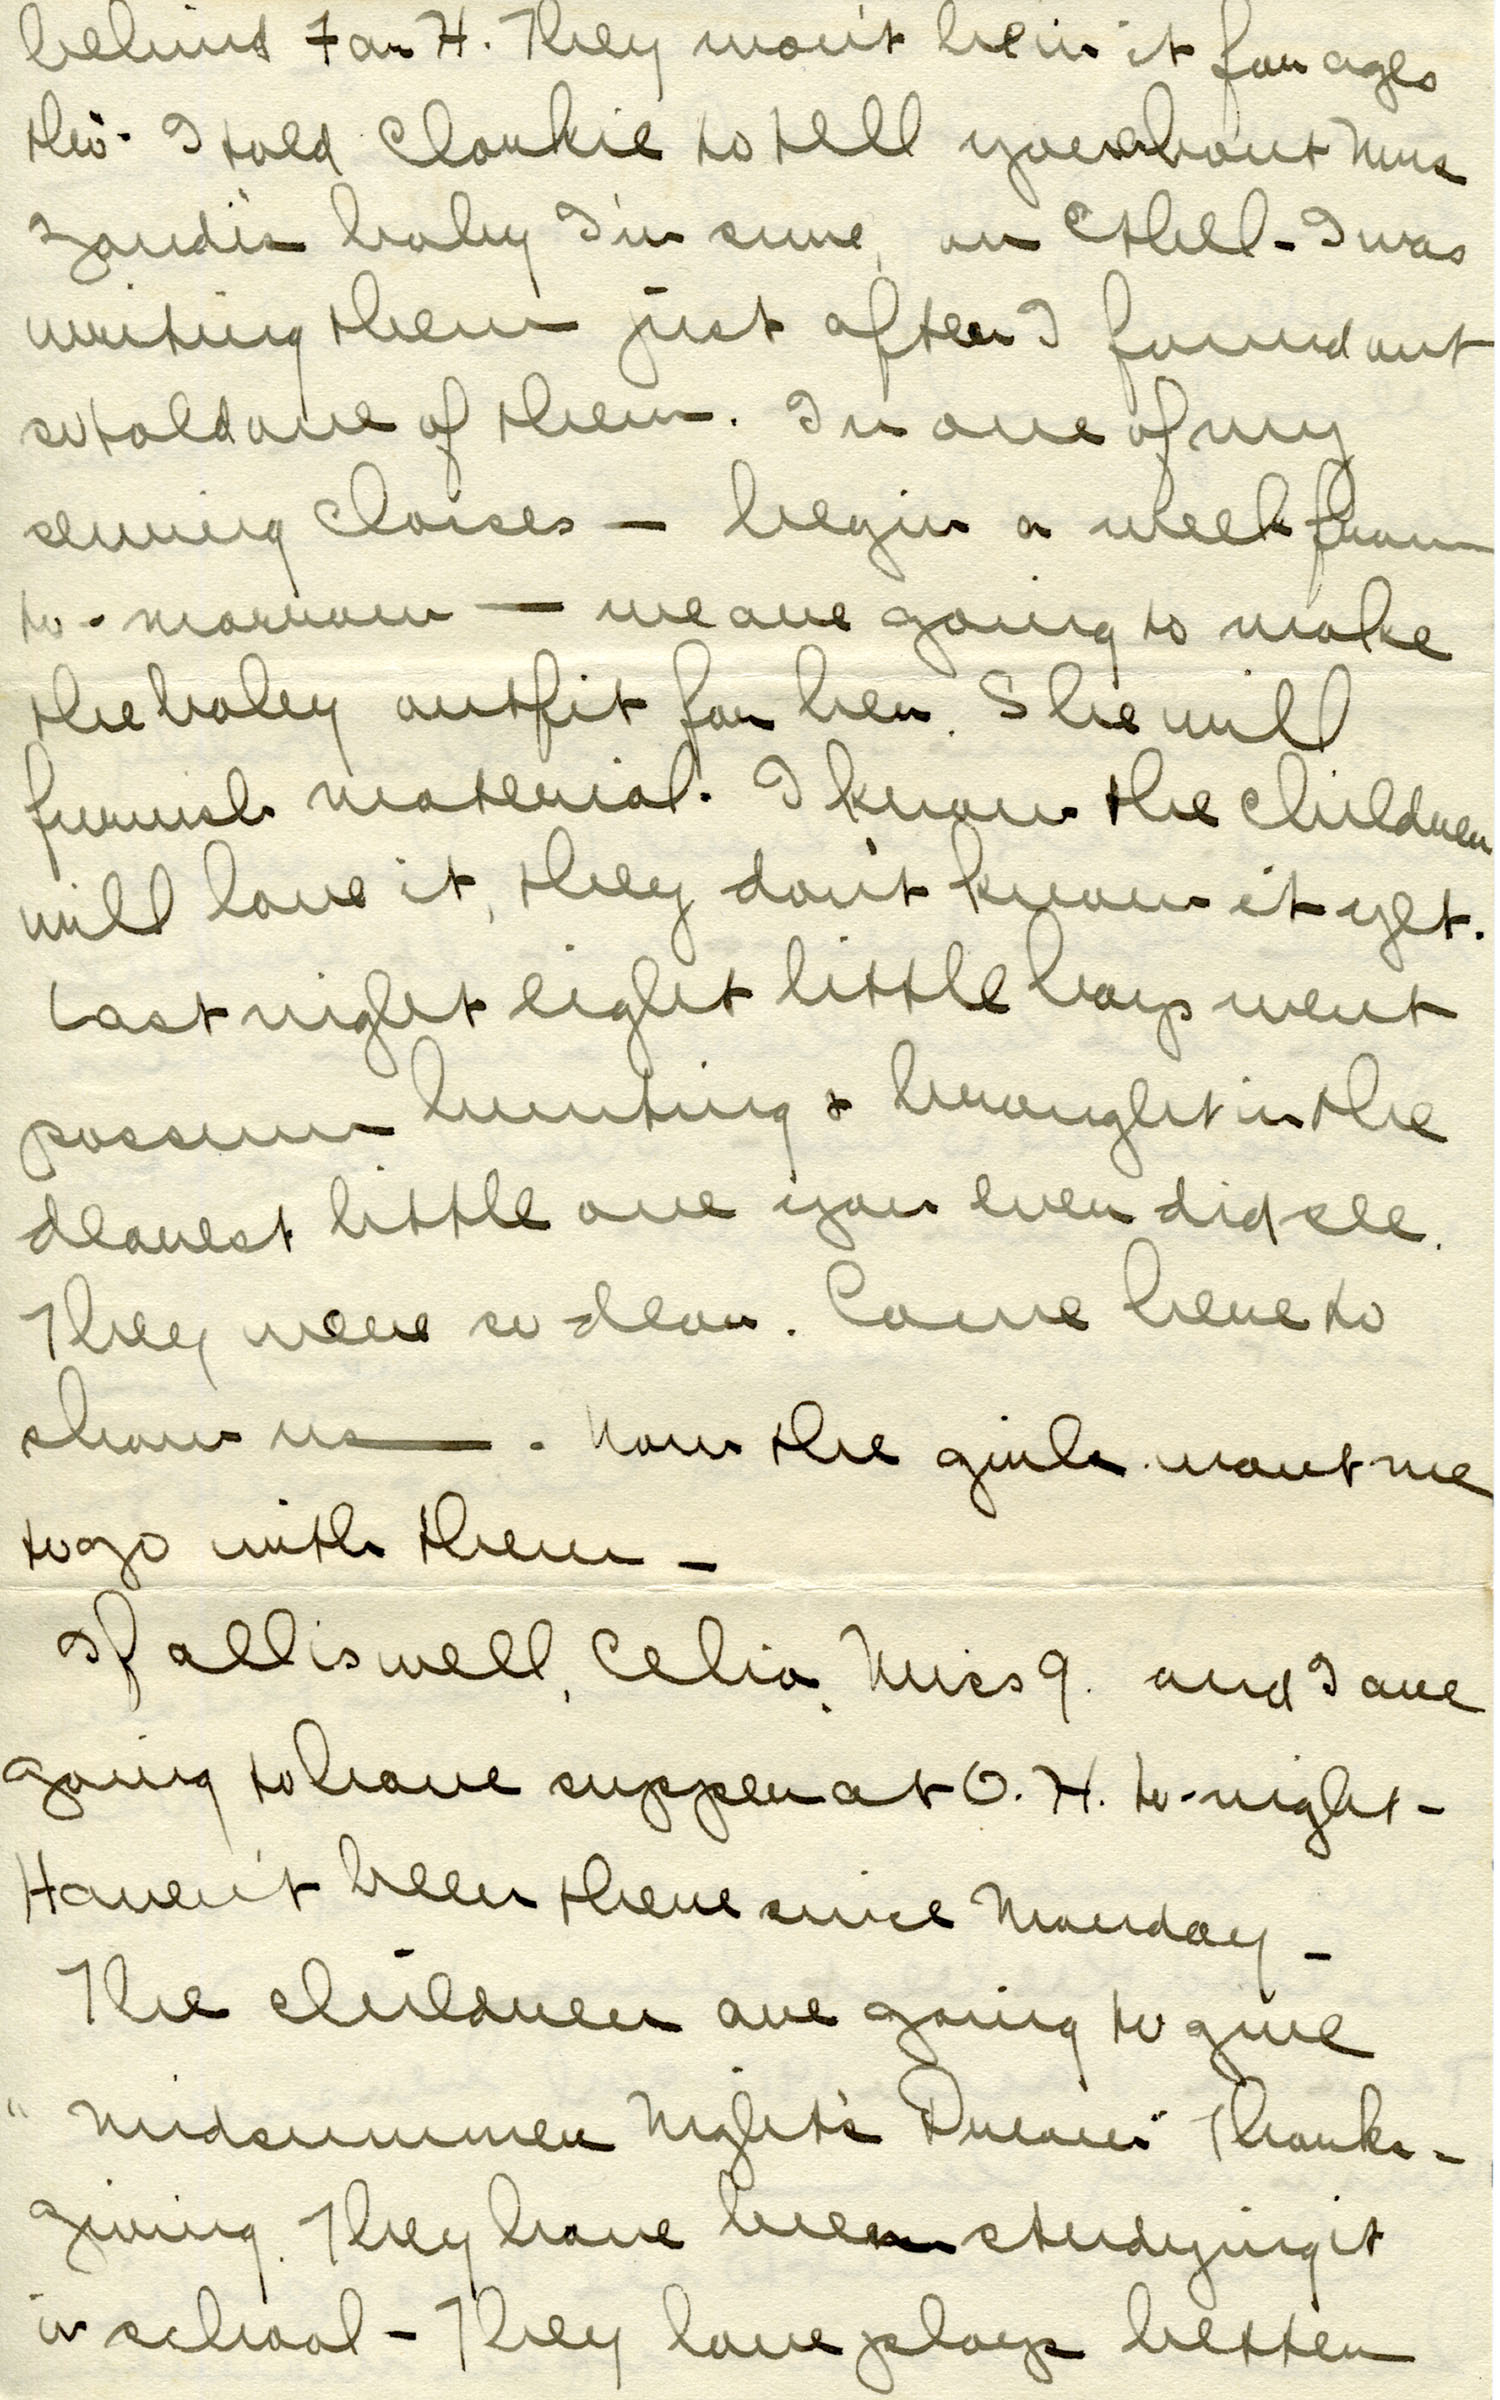 behind Far H. They won't be in it for ages
tho'- I told Clarkie to tell you about Mrs
Zande's baby I'm sure, or Ethel - I was
writing them just after I found out
so told one of them. In one of my
sewing classes — begin a week from
to-morrow — we are going to make
the baby outfit for her. She will
furnish material. I know the children
will love it, they don't know it yet.
Last night eight little boys went
possum hunting & brought in the
dearest little one you ever did see.
They were so dear. Came here to
show us — . Now the girls want me
to go with them -
If all is well, Celia, Miss G. and I are
going to have supper at O. H. to-night -
Haven't been there since Monday -
The children are going to give
"Midsummer Night's Dream" Thanks-
giving. They have been studying it
in school - They love plays better